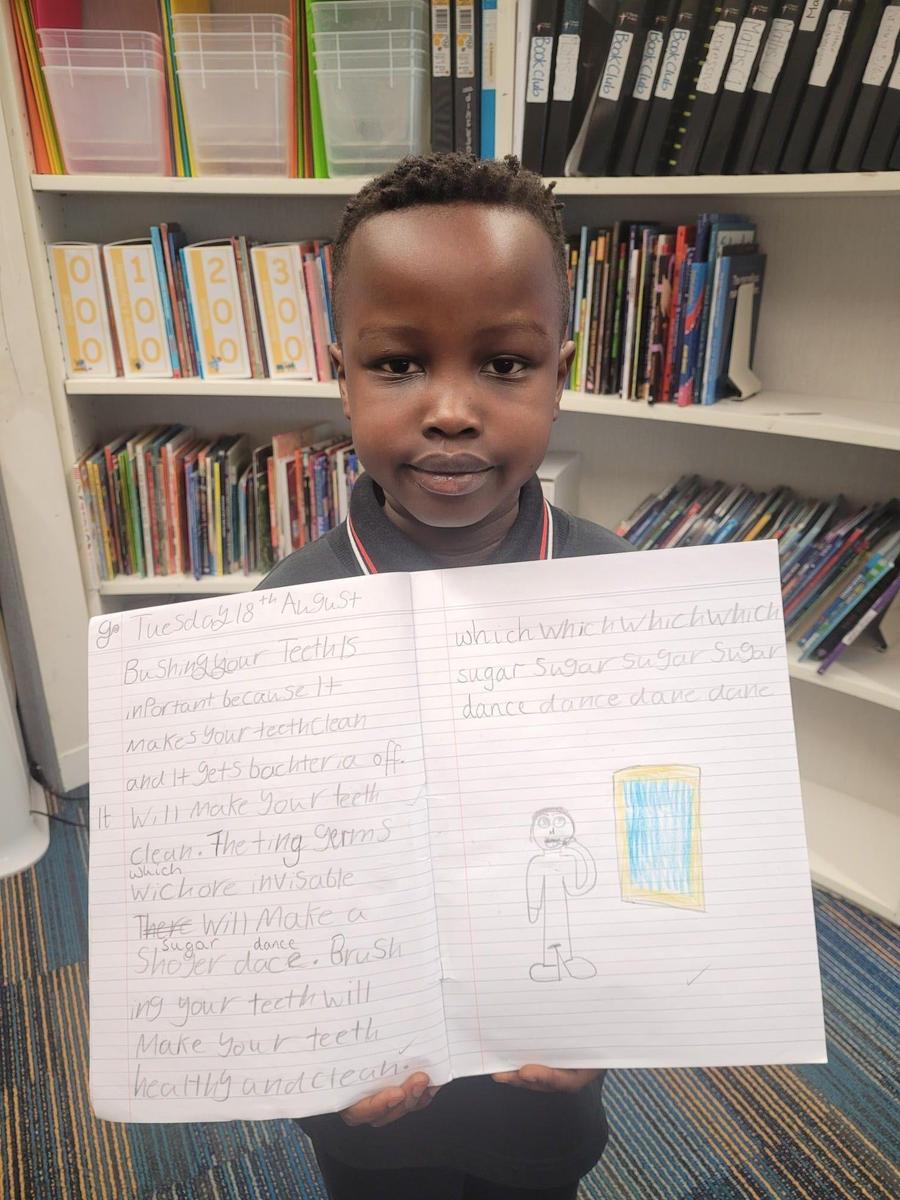 Book Club
Book Club
Book Club
Book Club
0 0 0
1 0 0
2 0 0
3 0 0
go Tuesday 18th August
Bushing your Teeth Is
inportant because It
makes your teeth clean
and It gets bachteria off.
It Will make your teeth
clean. The ting germs
which
wich ore invisable
There Will Make a
sugar dance
Shoger dace. Brush
ing your teeth will
Make your teeth
healthy and clean.
which which which which
sugar sugar sugar sugar
dance dance dane dane